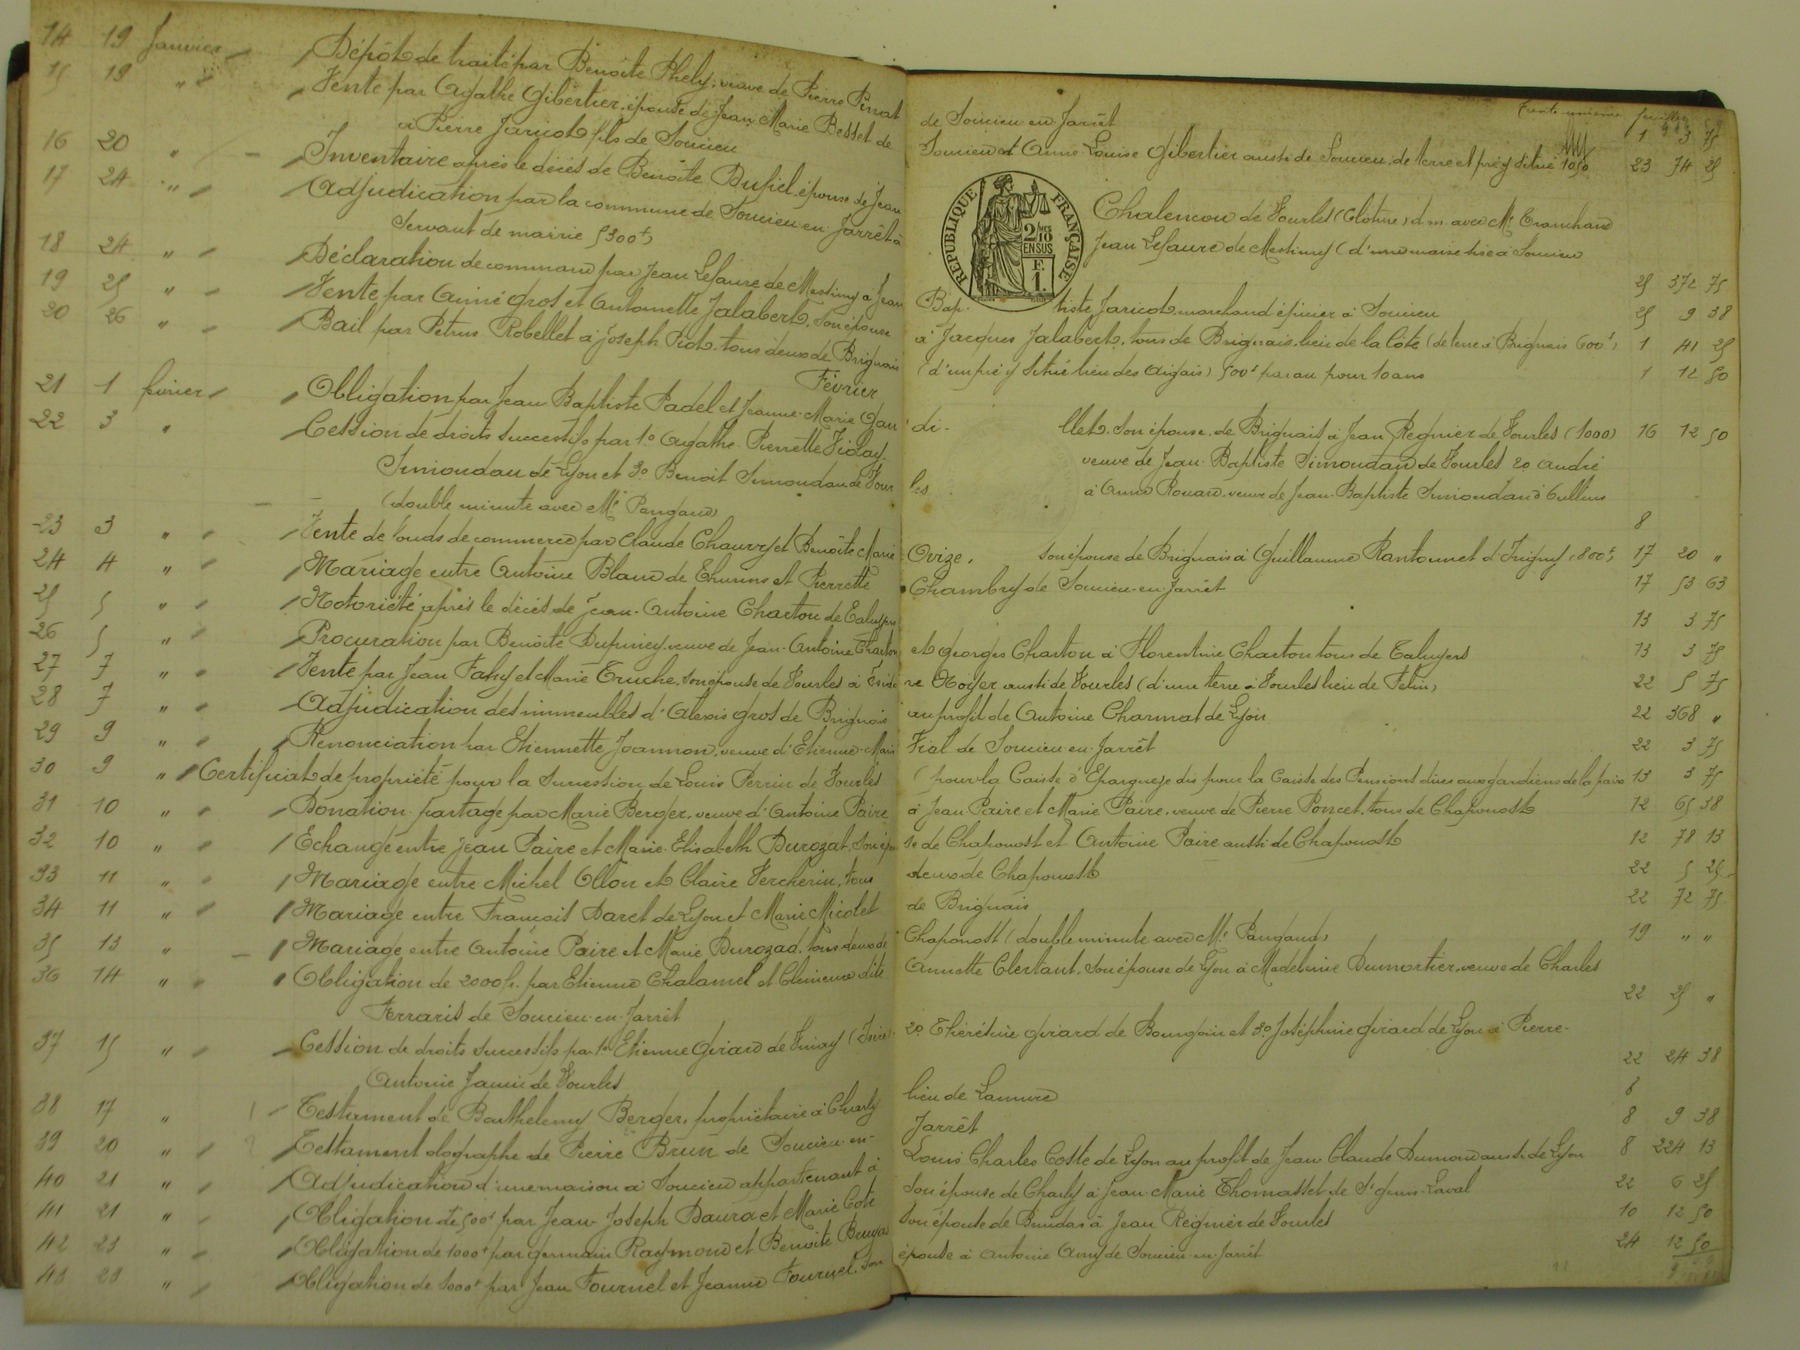 14 19 Janvier Dépôt de traité par Benoîte Phely, veuve de Pierre Perrat
15 19 " Vente par Agathe Gibertier, épouse de Jean Marie Besset de
à Pierre Jaricot fils de Soucieu
16 20 " Inventaire après le décès de Benoîte Dupiel épouse de Jean
17 24 " Adjudication par la commune de Soucieu en Jarrêt à
Servant de mairie 5300f)
18 24 " Déclaration de command par Jean Lefaure de Messimy à Jean
19 25 " Vente par Aimé Gros et Antoinette Jalabert, son épouse
20 26 " Bail par Petrus Robellet à Joseph Piot, tous deux de Brignais
Février
21 1 février Obligation par Jean Baptiste Padel et Jeanne-Marie Gau
22 3 " Cession de droits successifs par 1o Agathe Pierrette Fiday
Simoudan de Lyon et 3o Benoit Simoudan de Vour
(double minute avec Me Pangaud)
23 3 " Vente de fonds de commerce par Claude Chauvy et Benoîte Marie
24 4 " Mariage entre Antoine Blanc de Thurins et Pierrette
25 5 " Notoriété après le décès de Jean-Antoine Charton de Taluyers
26 5 " Procuration par Benoîte Dupiney veuve de Jean-Antoine Charton
27 7 " Vente par Jean Fahy et Marie Truche, son épouse de Vourles à
28 7 " Adjudication des immeubles d'Alexis Gros de Brignais
29 9 " Renonciation par Etiennette Joannon, veuve d'Etienne-Marie
30 9 " Certificat de propriété pour la succession de Louis Perrin de Vourles
31 10 " Donation partage par Marie Berger, veuve d'Antoine Paire
32 10 " Echange entre Jean Paire et Marie-Elisabeth Durozat, son épou
33 11 " Mariage entre Michel Ollon et Claire Vercherin, tous
34 11 " Mariage entre François Daret de Lyon et Marie Micolet
35 13 " Mariage entre Antoine Paire et Marie Durozad, tous deux de
36 14 " Obligation de 2000f. par Etienne Chalamel et Clémence dite
Ferraris de Soucieu-en-Jarrêt
37 15 " Cession de droits successifs par 1o Etienne Girard de Vinay (Isère)
Antoine Jamin de Vourles
38 17 " Testament de Barthelemy Berger, propriétaire à Charly
39 20 " Testament olographe de Pierre Brun de Soucieu-en-
40 21 " Adjudication d'une maison à Soucieu appartenant à
41 21 " Obligation de 500f par Jean Joseph Daura et Marie Cote
42 23 " Obligation de 1000f par Germain Raymond et Benoîte Bruyas
43 28 " Obligation de 1000f par Jean Fournel et Jeanne Fournel, son
Trente unième feuillet
de Soucieu en Jarrêt 1 3 75
Soucieu et Anne-Louise Gibertier aussi de Soucieu, de terre et pré y situé 1050 23 74 25
RÉPUBLIQUE FRANÇAISE
2/10 EN SUS
F. 1.
Chalencon de Vourles (Cloture) d.m avec Me Tranchand
Jean Lefaure de Messimy (d'une maison sise à Soucieu
25 372 75
Bap- tiste Jaricot marchand épicier à Soucieu 25 9 38
à Jacques Jalabert, tous de Brignais, lieu de la Côte (de terre à Brignais 600f) 1 41 25
(d'un pré y situé lieu des Aigais) 500f par an pour 10 ans 1 12 50
di- llet, son épouse, de Brignais à Jean Regnier de Vourles (1000) 16 12 50
veuve de Jean-Baptiste Simoudan de Vourles 2o André
les à Anne Rouard, veuve de Jean-Baptiste Simoudan d'Oullins
8
Ovize, son épouse de Brignais à Guillaume Rantonnet d'Irigny, 800f) 17 20 "
Chambry de Soucieu-en-Jarrêt 17 53 63
13 3 75
et Georges Charton à Florentine Charton tous de Taluyers 13 3 75
re Noyer aussi de Vourles (d'une terre à Vourles lieu de Felin) 22 5 75
au profit de Antoine Charmat de Lyon 22 368 "
Fial de Soucieu-en-Jarrêt 22 3 75
(pour la Caisse d'Epargne je dis pour la Caisse des Pensions dues aux gardiens de la paix 13 3 75
à Jean Paire et Marie Paire, veuve de Pierre Poncet, tous de Chaponost 12 65 38
se de Chaponost et Antoine Paire aussi de Chaponost 12 78 13
deux de Chaponost 22 5 25
de Brignais 22 72 75
Chaponost (double minute avec Me Pangaud) 19 " "
Annette Clertant, son épouse de Lyon à Madeleine Dumortier, veuve de Charles
22 25 "
2o Thérésine Girard de Bourgoin et 3o Joséphine Girard de Lyon à Pierre-
22 24 38
lieu de Lamure 8
Jarrêt 8 9 38
Louis Charles Coste de Lyon au profit de Jean Claude Dumond aussi de Lyon 8 224 13
son épouse de Charly à Jean-Marie Thomasset de St Genis-Laval 22 6 25
son épouse de à Jean Régnier de Vourles 10 12 50
épouse à Antoine Any de Soucieu-en-Jarrêt 24 12 50